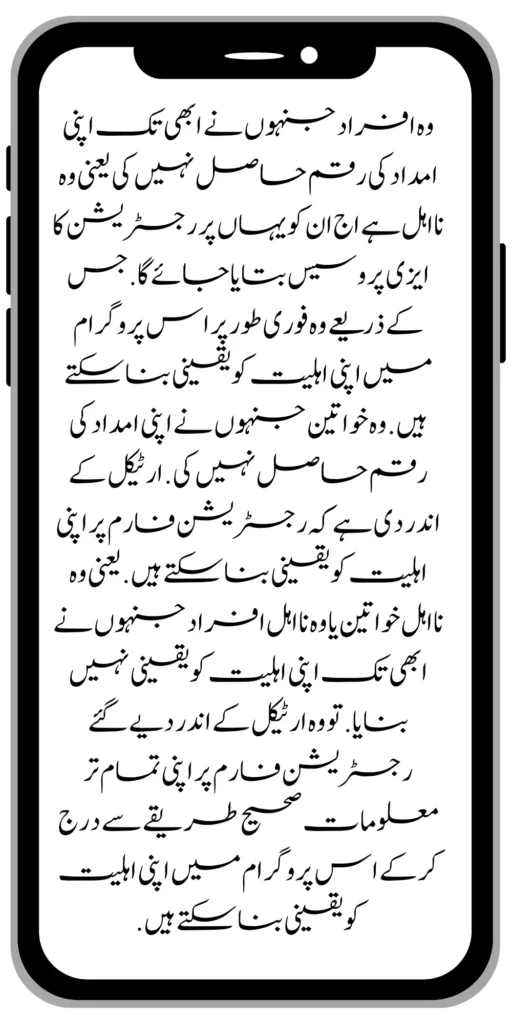 وہ افراد جنہوں نے ابھی تک اپنی
امداد کی رقم حاصل نہیں کی یعنی وہ
نااہل ہے اج ان کو یہاں پر رجسٹریشن کا
ایزی پروسیس بتایا جائے گا. جس
کے ذریعے وہ فوری طور پر اس پروگرام
میں اپنی اہلیت کو یقینی بنا سکتے
ہیں. وہ خواتین جنہوں نے اپنی امداد کی
رقم حاصل نہیں کی. ارٹیکل کے
اندر دی ہے کہ رجسٹریشن فارم پر اپنی
اہلیت کو یقینی بنا سکتے ہیں. یعنی وہ
نااہل خواتین یا وہ نااہل افراد جنہوں نے
ابھی تک اپنی اہلیت کو یقینی نہیں
بنایا. تو وہ ارٹیکل کے اندر دیے گئے
رجسٹریشن فارم پر اپنی تمام تر
معلومات صحیح طریقے سے درج
کر کے اس پروگرام میں اپنی اہلیت
کو یقینی بنا سکتے ہیں.